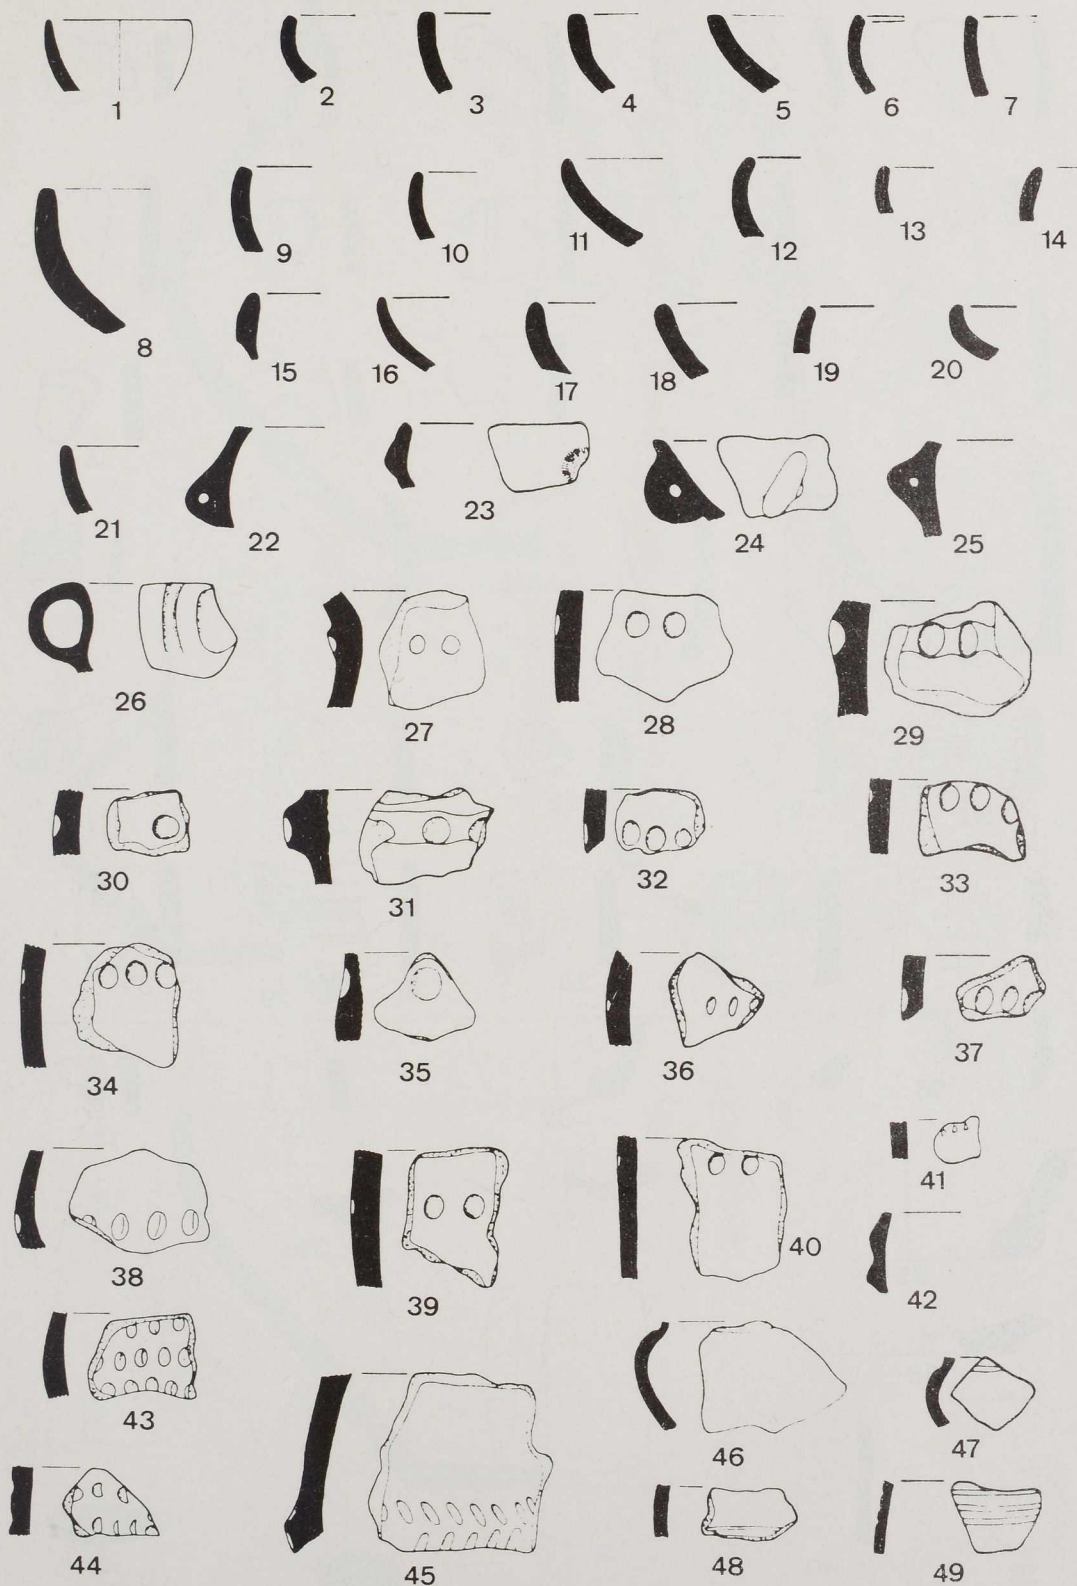 1 2 3 4 5 6 7
8 9 10 11 12 13 14
15 16 17 18 19 20
21 22 23 24 25
26 27 28 29
30 31 32 33
34 35 36 37
38 39 40 41
42
43 44 45 46 47
48 49